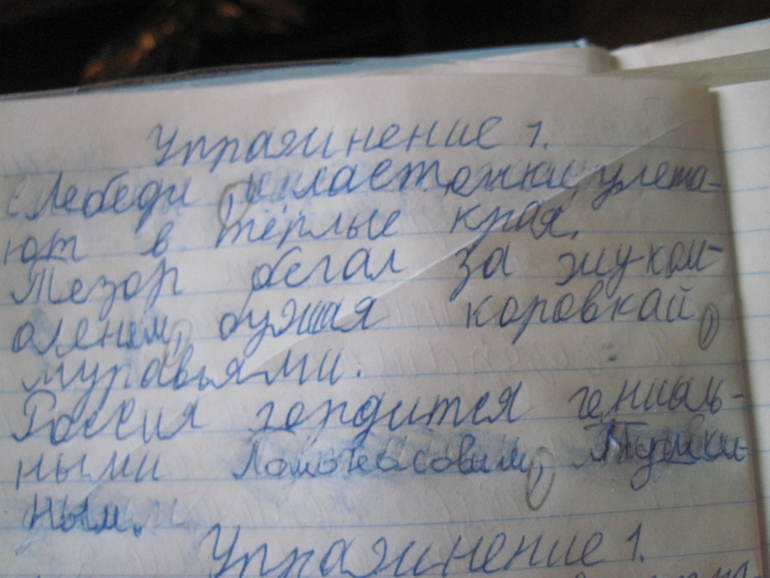 Упражнение 1.
Лебеди, и ласточки улета-
ют в тёплые края.
Тезор бегал за жуком-
оленем, бужая коровкай,
муравьями.
Россия гордится гениаль-
ными Ломоносовим, Пушки-
ным.
Упражнение 1.